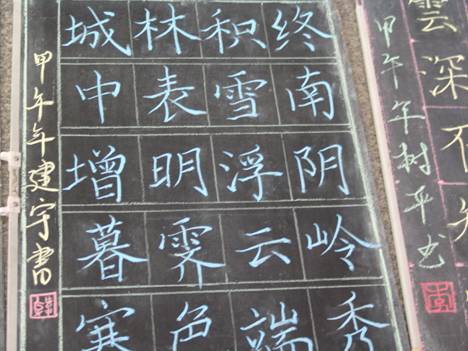 终南阴岭秀
积雪浮云端
林表明霁色
城中增暮寒
甲午年建宇书
雲深不知
甲午年树平书